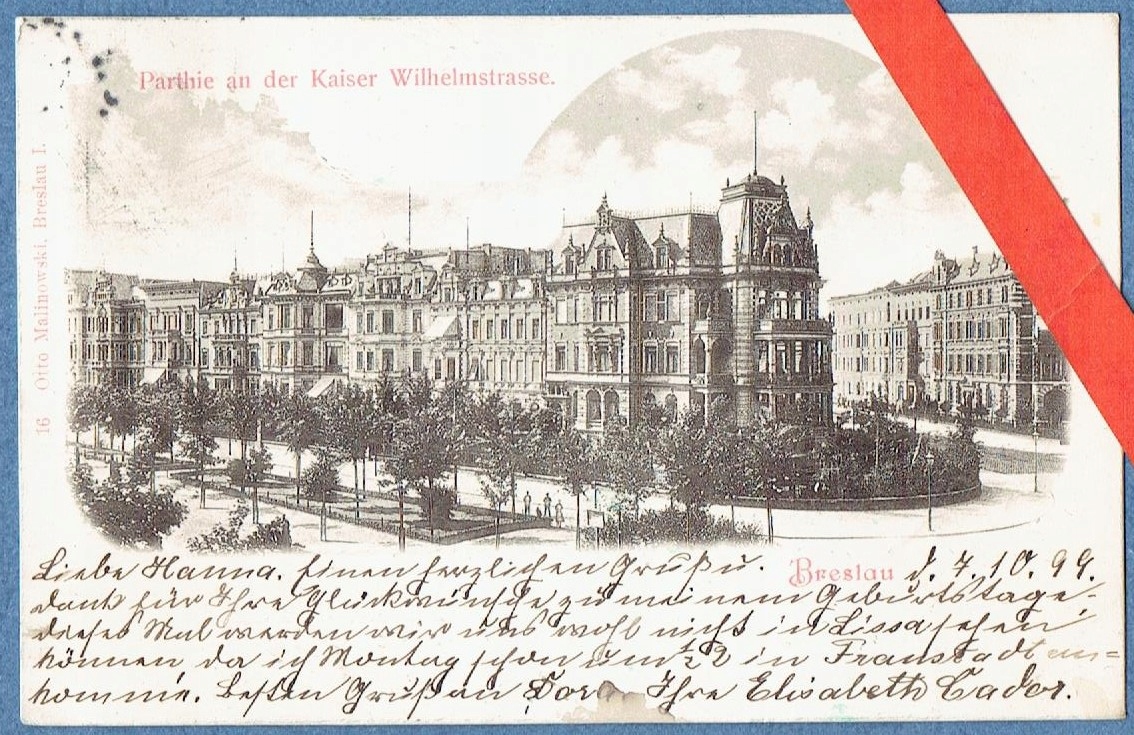 Parthie an der Kaiser Wilhelmstrasse.
16 Otto Malinowski, Breslau I.
Breslau d. 7. 10. 99.
Liebe Hanna. Einen herzlichen Gruß u.
dank für Ihre Glückwünsche zu meinem Geburtstage.
dieses Mal werden wir uns wohl nicht in Lissa sehen
können da ich Montag schon um ½2 in Fraustadt an=
komme. Besten Gruß an Ihre Elisabeth Cador.